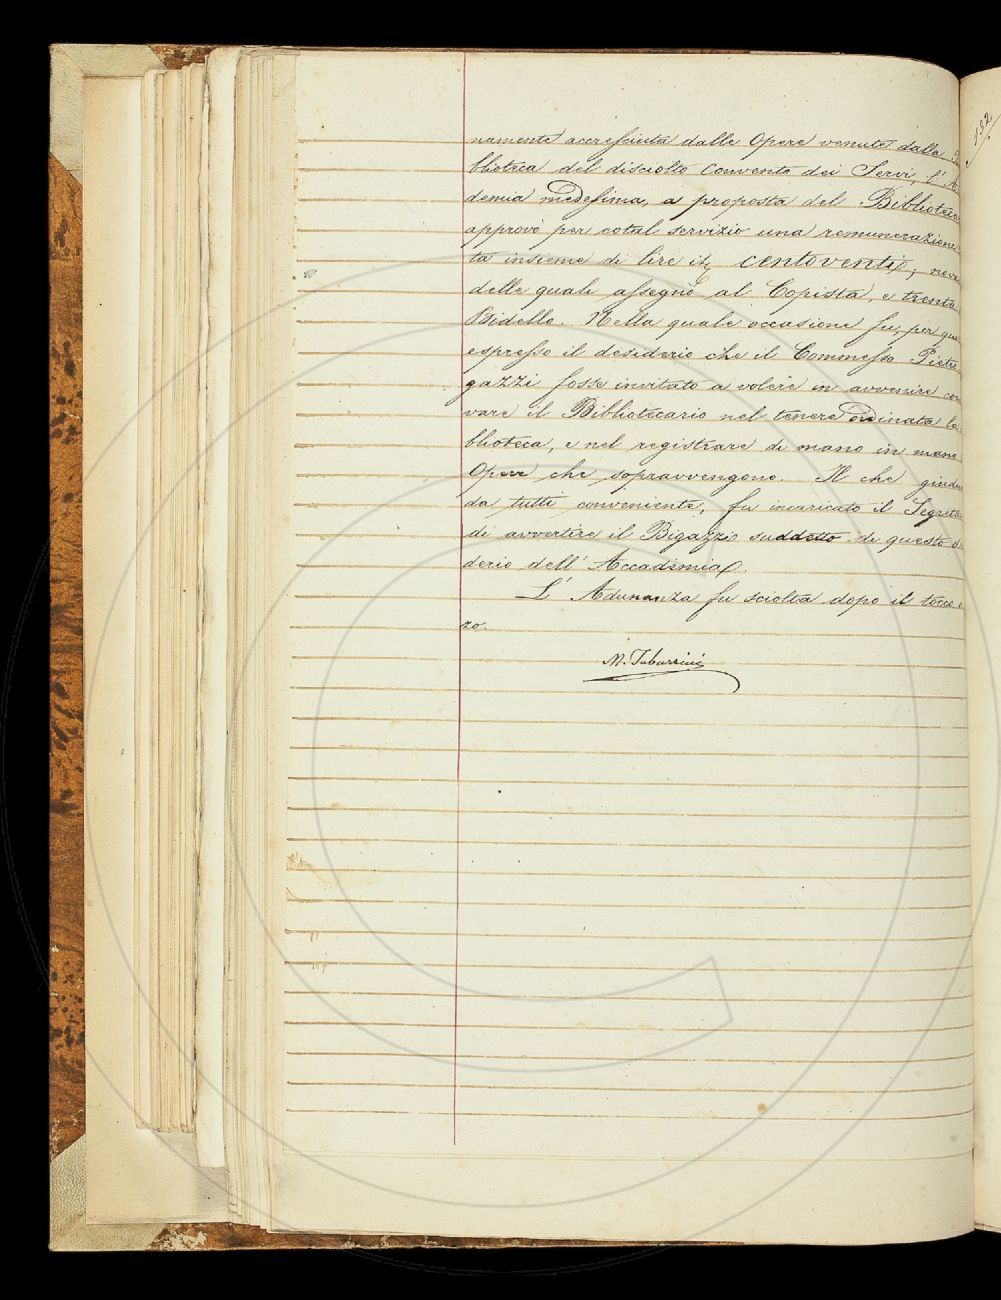 namente accresciuta dalle Opere venute dalla
blioteca del disciolto Convento dei Servi, l'A
demia medesima, a proposta del Bibliotec
approvò per cotal servizio una remunerazione
ta insieme di lire it. centoventi, nov
delle quali assegnò al Copista, e trenta
Bidello. Nella quale occasione fu, per qu
espresso il desiderio che il Commesso Pietr
gazzi fosse invitato a volere in avvenire
vare il Bibliotecario nel tenere ordinata la
blioteca, e nel registrare di mano in mano
Opere che sopravvengono. Il che giudi
da tutti conveniente, fu incaricato il Segreta
di avvertire il Bigazzi suddetto di questo
derio dell'Accademia.
L'Adunanza fu sciolta dopo il tocco e
zo.
M. Tabarrini
132